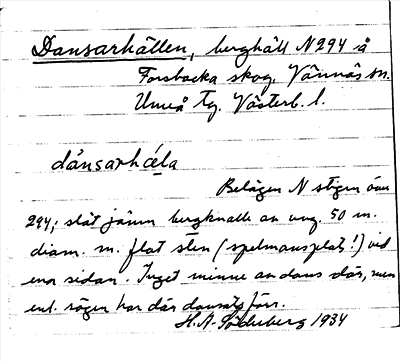 Dansarhällen, berghäll N 294 å
Forsbacka skog. Vännäs sn.
Umeå tg. Västerb. l.
dánsarhǽla
Belägen N stigen över
294; slät jämn bergknalle av ung. 50 m.
diam. m. flat sten (spelmansplats!) vid
ena sidan. Inget minne av dans där, men
enl. sägen har där dansats förr.
H.A. Söderberg 1934